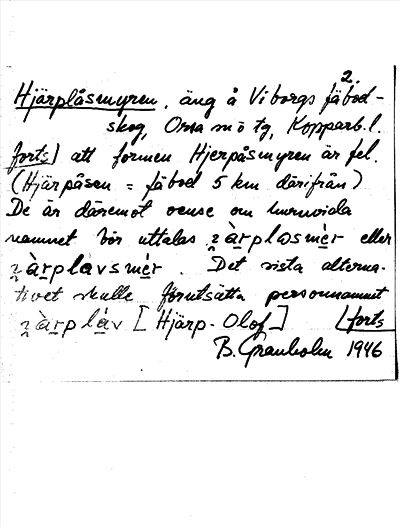 2.
Hjärplåsmyren, äng å Viborgs fäbod-
skog, Orsa sn ö tg, Kopparb. l.
forts] att formen Hjerpåsmyren är fel.
(Hjärpåsen = fäbod 5 km därifrån)
De är däremot ovisse om huruvida
namnet bör uttalas ʐàrplɑsmèr eller
ʐàrplavsmèr. Det sista alterna-
tivet skulle förutsätta personnamnet
ʐàrplàv [Hjärp-Olof] [forts
B. Granholm 1946